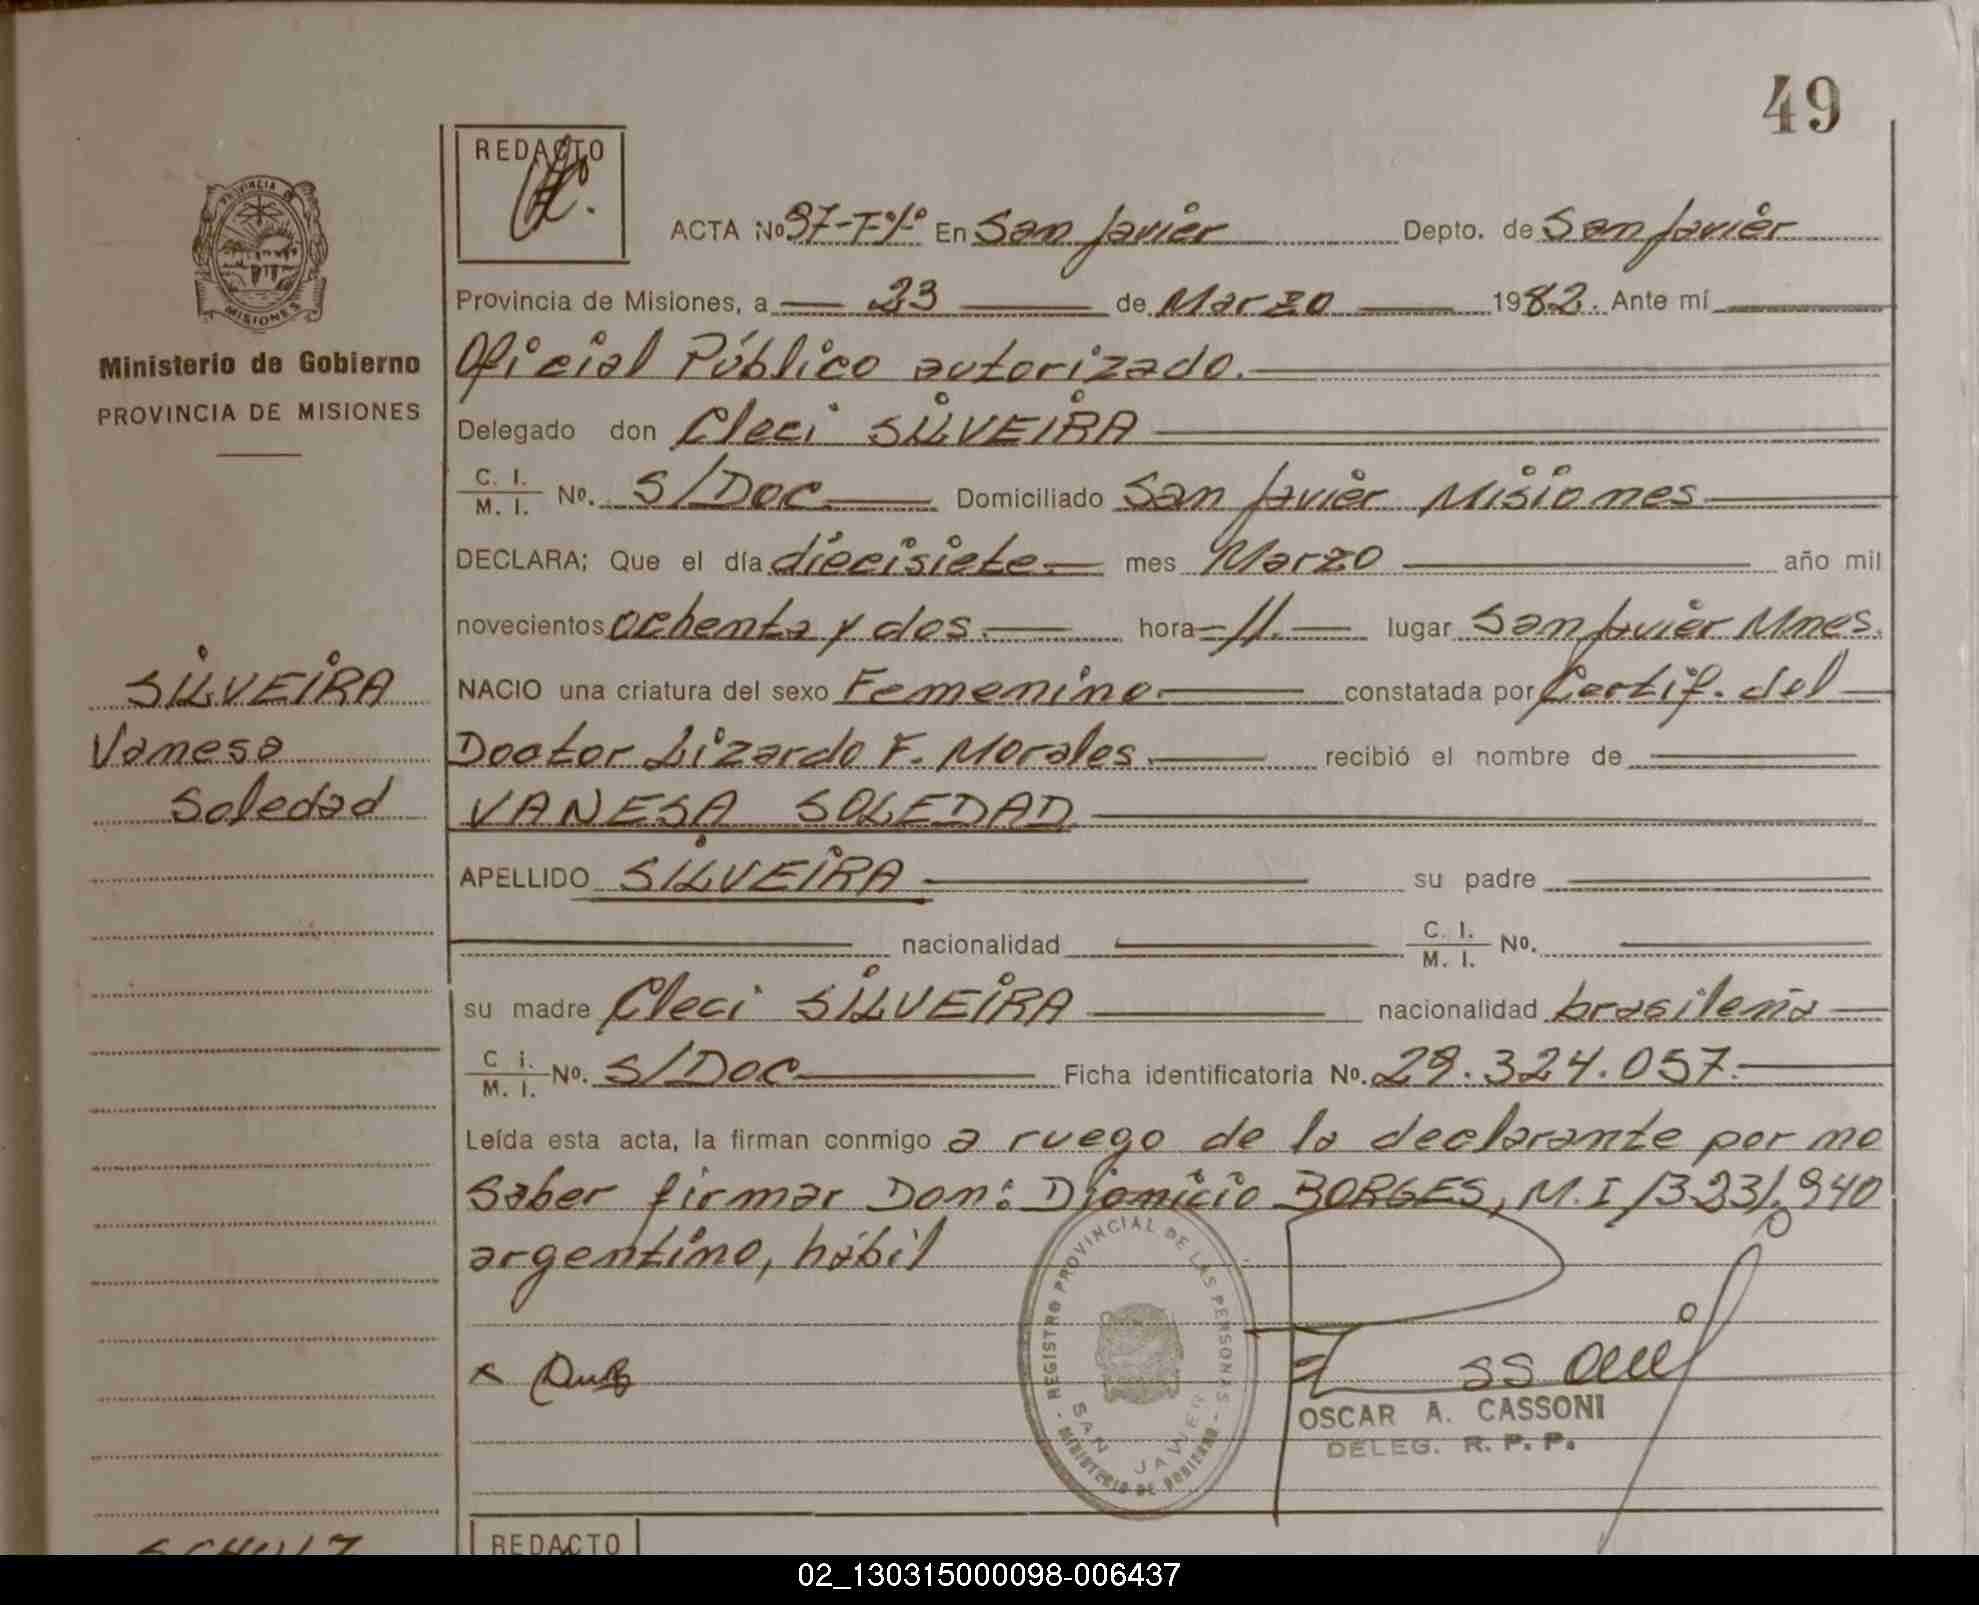 49
REDACTO
PROVINCIA DE
MISIONES
ACTA No 97-Tº1º En San Javier Depto. de San Javier
Provincia de Misiones, a 23 de Marzo 1982. Ante mí
Oficial Público autorizado.
Ministerio de Gobierno
PROVINCIA DE MISIONES
Delegado don Cleci SILVEIRA
C. I. / M. I. No. S/Doc Domiciliado San Javier Misiones
DECLARA; Que el día diecisiete mes Marzo año mil
novecientos ochenta y dos. hora 11. lugar San Javier Mnes.
SILVEIRA
Vanesa
Soledad
NACIO una criatura del sexo Femenino. constatada por Certif. del
Doctor Lizardo F. Morales. recibió el nombre de
VANESA SOLEDAD
APELLIDO SILVEIRA su padre
nacionalidad C. I. / M. I. No.
su madre Cleci SILVEIRA nacionalidad brasileña
C i. / M. I. No. S/Doc Ficha identificatoria No. 29.324.057.
Leída esta acta, la firman conmigo a ruego de la declarante por no
saber firmar Don: Dionicio BORGES, M.I
argentino, hábil
REGISTRO PROVINCIAL DE LAS PERSONAS
SAN JAVIER
MINISTERIO DE GOBIERNO
OSCAR A. CASSONI
DELEG. R. P. P.
REDACTO
02_130315000098-006437